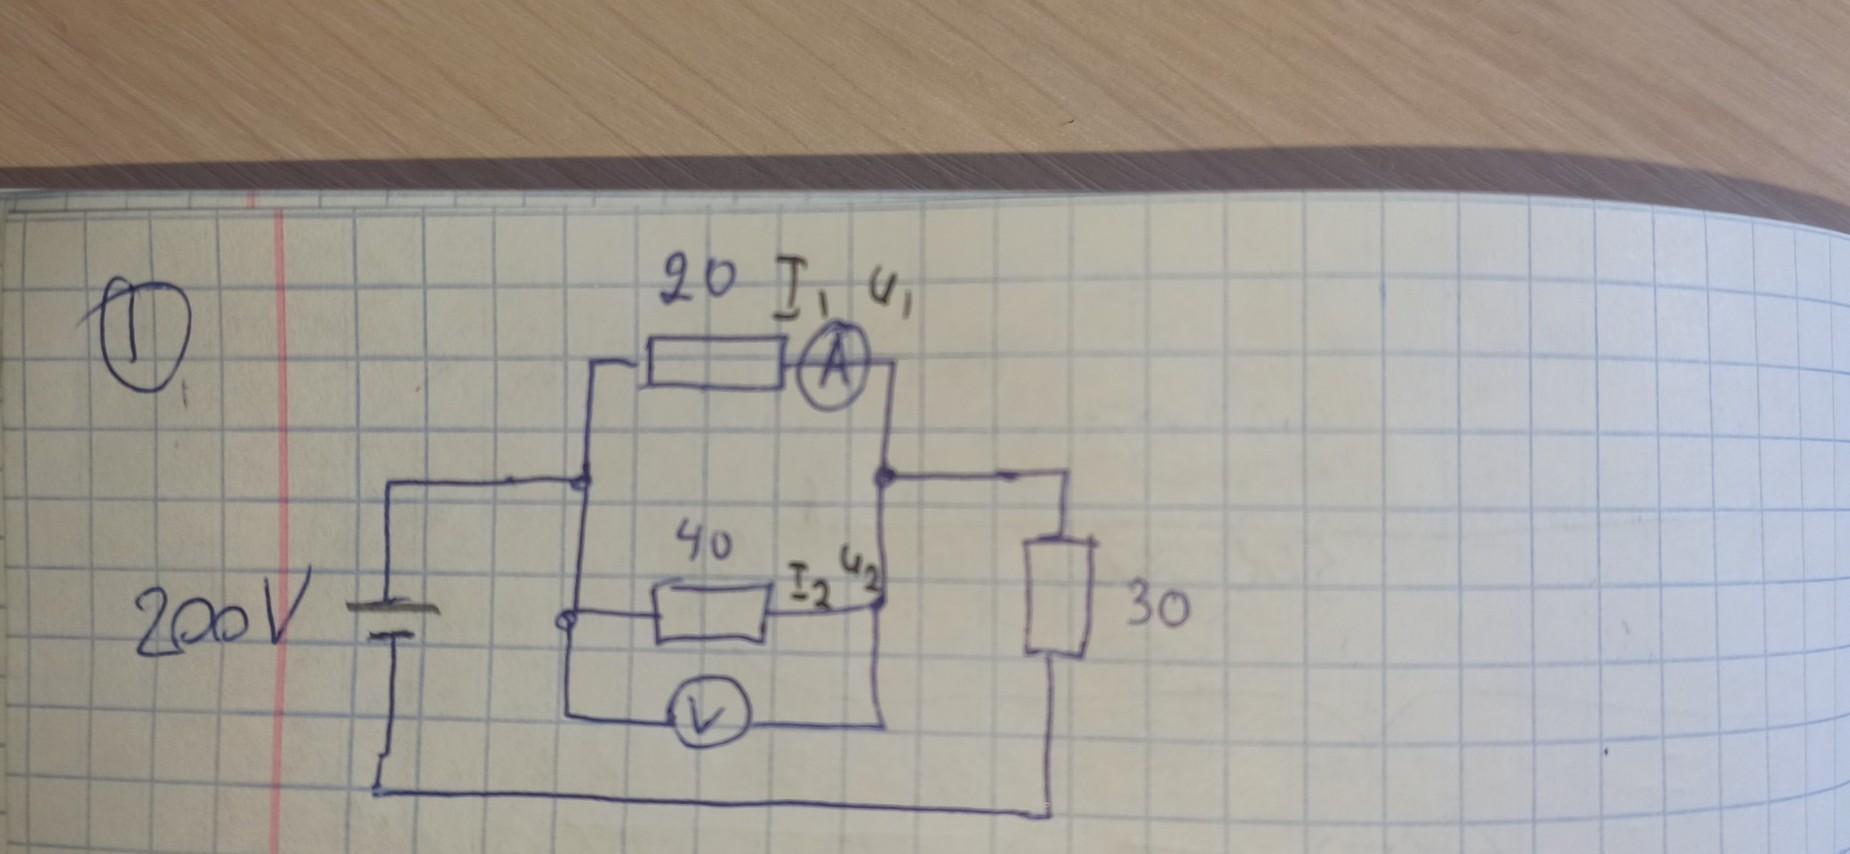 1
20 I₁ u₁
A
40 I₂ u₂
200V
30
V